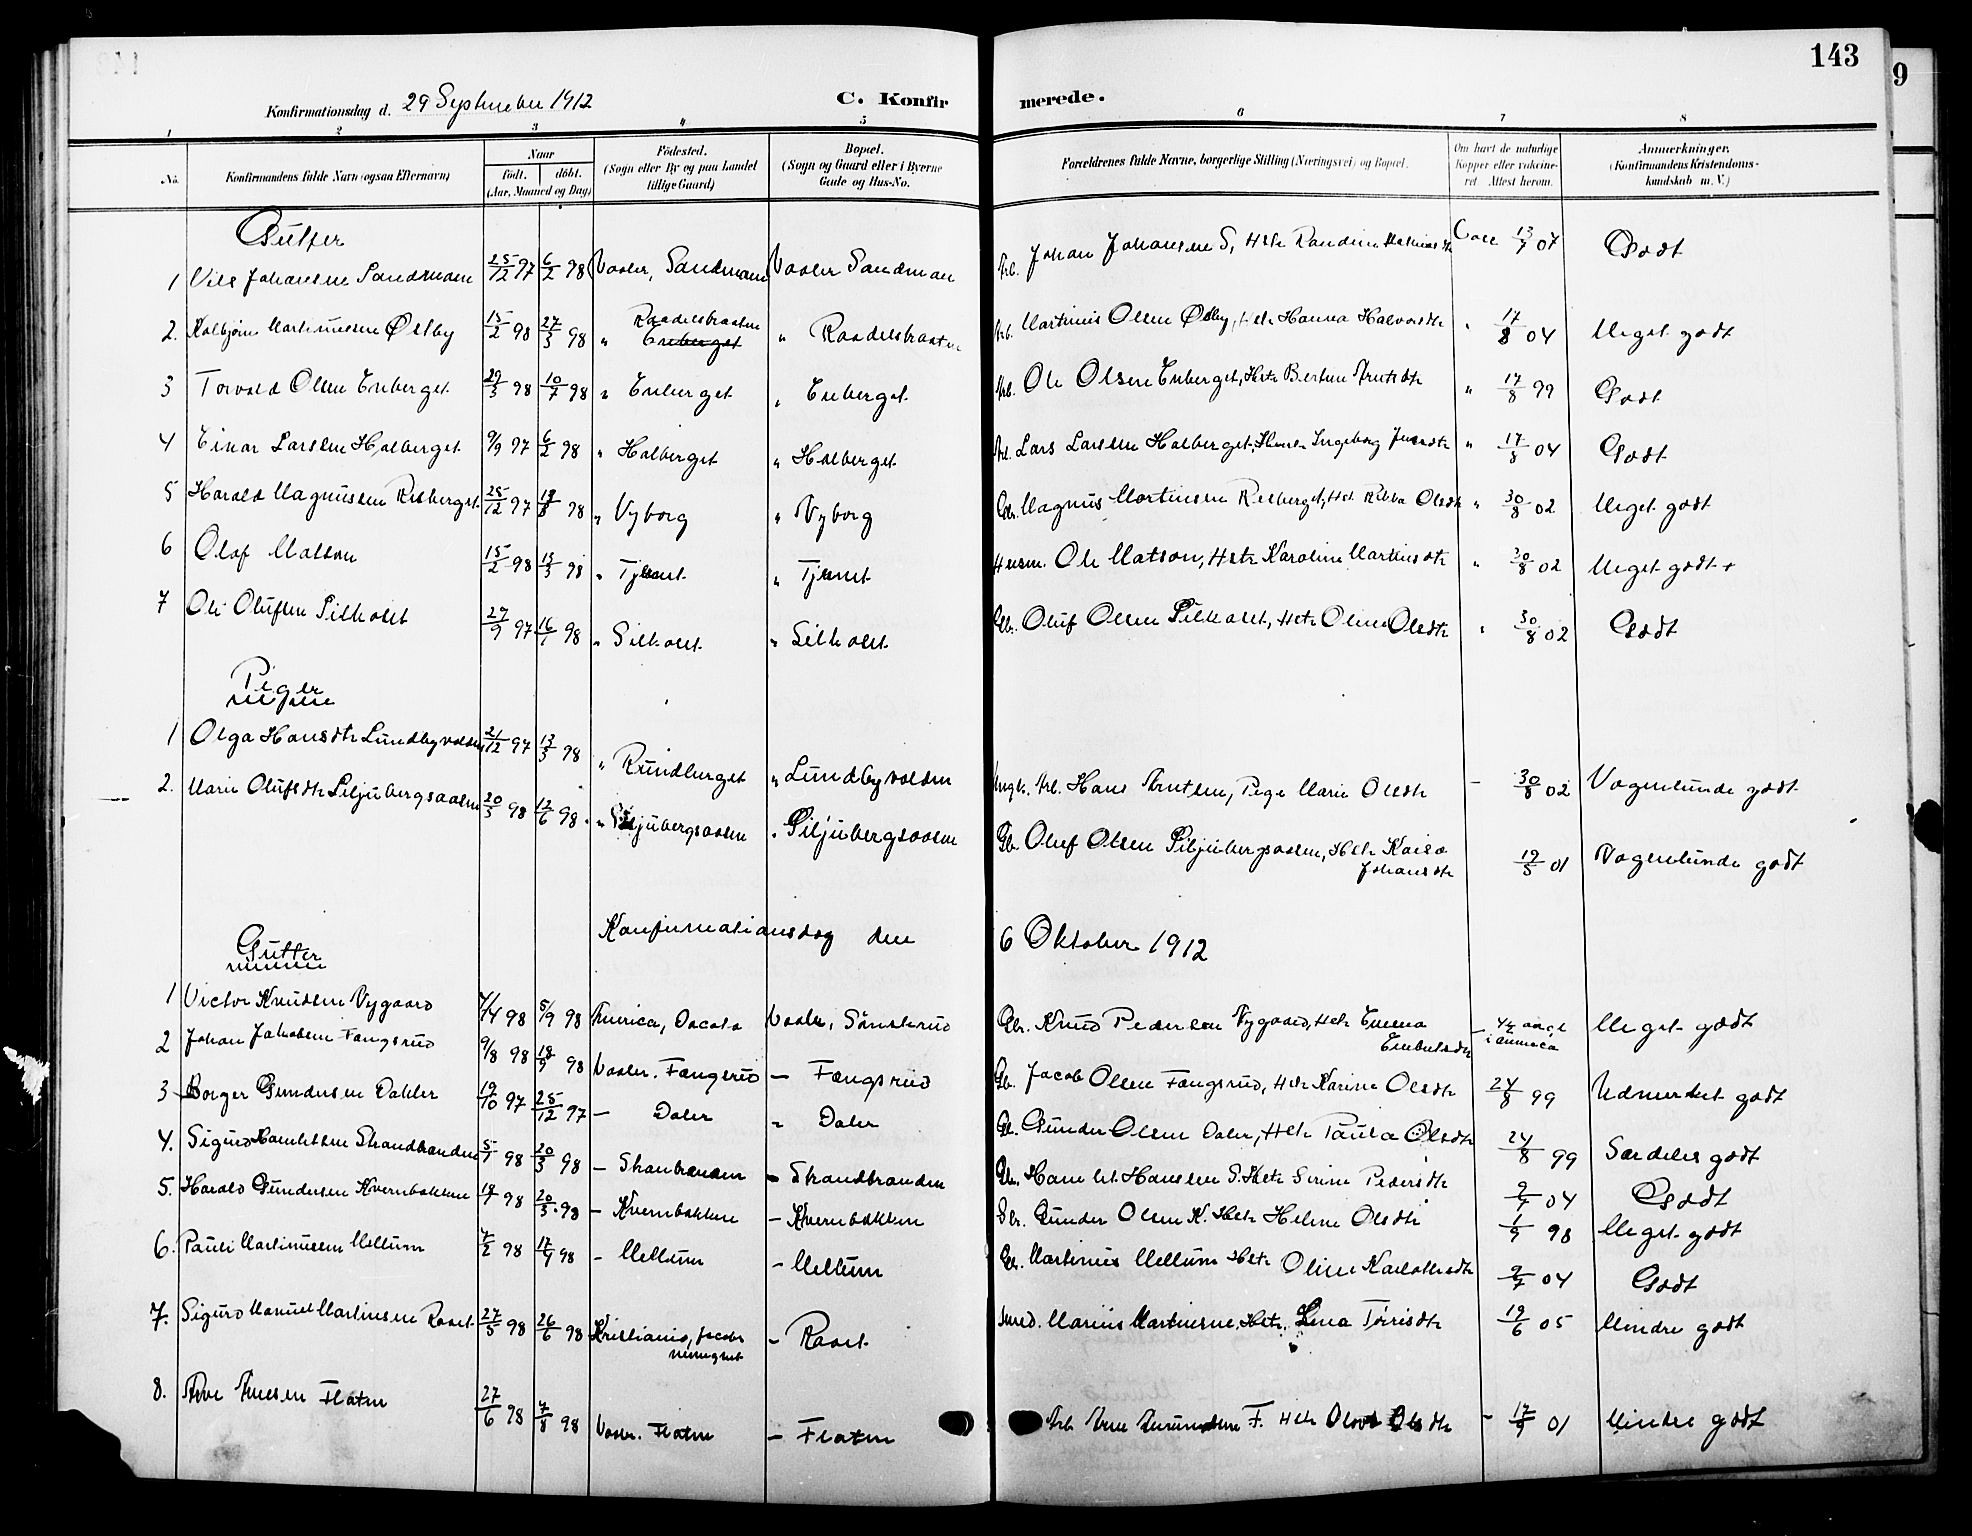 143
9
Konfirmationsdag d. 29 September 1912 C. Konfirmerede.
1 2 3 4 5 6 7 8
No. Konfirmandens fulde Navn (ogsaa Efternavn) Naar födt. döbt. (Aar, Maaned og Dag) Födested. (Sogn eller By og paa Landet tillige Gaard) Bopæl. (Sogn og Gaard eller i Byerne Gade og Hus-No. Forældrenes fulde Navne, borgerlige Stilling (Næringsvei) og Bopæl. Om havt de naturlige Kopper eller vaccineret Attest herom. Anmærkninger. (Konfirmandens Kristendomskundskab m. V.)
Gutter
1 Nils Johansen Sandmoen 25/12 97 6/2 98 Vaaler, Sandmoen Vaaler Sandmoen Arb. Johan Johansen S, Hstr Randine 13/7 07 Godt
2. Kolbjörn Martinusen Østby 15/2 98 27/3 98 " Raadelsbraaten " Raadelsbraaten Arb. Martinius Olsen Østby, Hstr Hanna Halvorsdtr " 17/8 04 Meget godt
3 Torvald Olsen Enberget 29/3 98 10/7 98 " Enberget " Enberget Arb. Ole Olsen Enberget, Hstr Bertine Arntsdtr " 17/8 99 Godt
4 Einar Larsen Halberget 9/9 97 6/2 98 " Halberget " Halberget Arb. Lars Larsen Halberget, Ingeborg " 17/8 04 Godt
5 Harald Magnussen Risberget 25/12 97 98 " Nyborg " Nyborg Magnus Martinsen Risberget, Hstr Olsdtr " 30/8 02 Meget godt
6 Olaf Matson 15/2 98 13/3 98 " Tjernet " Tjernet Husm. Ole Matson, Hstr Karoline Martinsdtr " 30/8 02 Meget godt +
7 Ole Olufsen Silkoset 27/9 97 16/1 98 " Silkoset " Silkoset Gbr. Oluf Olsen Silkoset, Hstr Oline Olsdtr " 30/8 02 Godt
Piger
1 Olga Hansdtr Lundbyvolden 21/12 97 13/3 98 " Rundberget " Lundbyvolden Ungk. Arb. Hans Arntsen, Pige Marie Olsdtr - 30/8 02 Nogenlunde godt
2. Marie Olufsdtr Siljubergsaasen 20/3 98 12/6 98. " Siljubergsaasen " Siljubergsaasen Gbr. Oluf Olsen Siljubergsaasen, Hstr Kaisa Johansdtr 19/5 01 Nogenlunde godt
Konfirmationsdag den 6 Oktober 1912
Gutter
1 Victor Knudsen Nygaard 7/4 98 5/9 98 America, Dacota Vaaler, Sönsterud Gbr. Knud Pedersen Nygaard, Hstr Emma Embretsdtr i America Meget godt
2 Johan Jakobsen Fangsrud 9/8 98 18/9 98 Vaaler. Fangsrud — Fangsrud Gb. Jacob Olsen Fangsrud, Hstr Karine Olsdtr 24/8 99 Udmerket godt
3 Borger Gundersen Dahler 19/10 97 25/12 97 — Daler " Daler Gb. Gunder Olsen Daler, Hstr Paula Olsdtr 24/8 99 Særdeles godt
4. Sigurd Hamletsen Strandbranden 5/1 98 20/3 98 — — Strandbranden Gbr. Hamlet Hansen S. Hstr Sirine Pedersdtr 9/7 04 Godt
5. Harald Gundersen Kvernbakken 98 20/3 98 — Kvernbakken — Kvernbakken Gunder Olsen K. Hstr Helene Olsdtr 1/9 98 Meget godt
6. Pauli Martinusen Mellum 7/2 98 17/4 98 — Mellum — Mellum Gbr. Martinius Mellum Hstr Oline 9/7 04 Godt
7. Sigurd Manuel Martinsen Raset 27/3 98 26/6 98 Kristiania, — Raset Smed. Marius Martinsen, Hstr. Lina Törrisdtr 19/6 05 Mindre godt
8. Arnesen Flaten 27/6 98 7/8 98 Vaaler. Flaten — Flaten Arb Arne F. Hstr Olsdtr - 17/9 01 Mindre godt